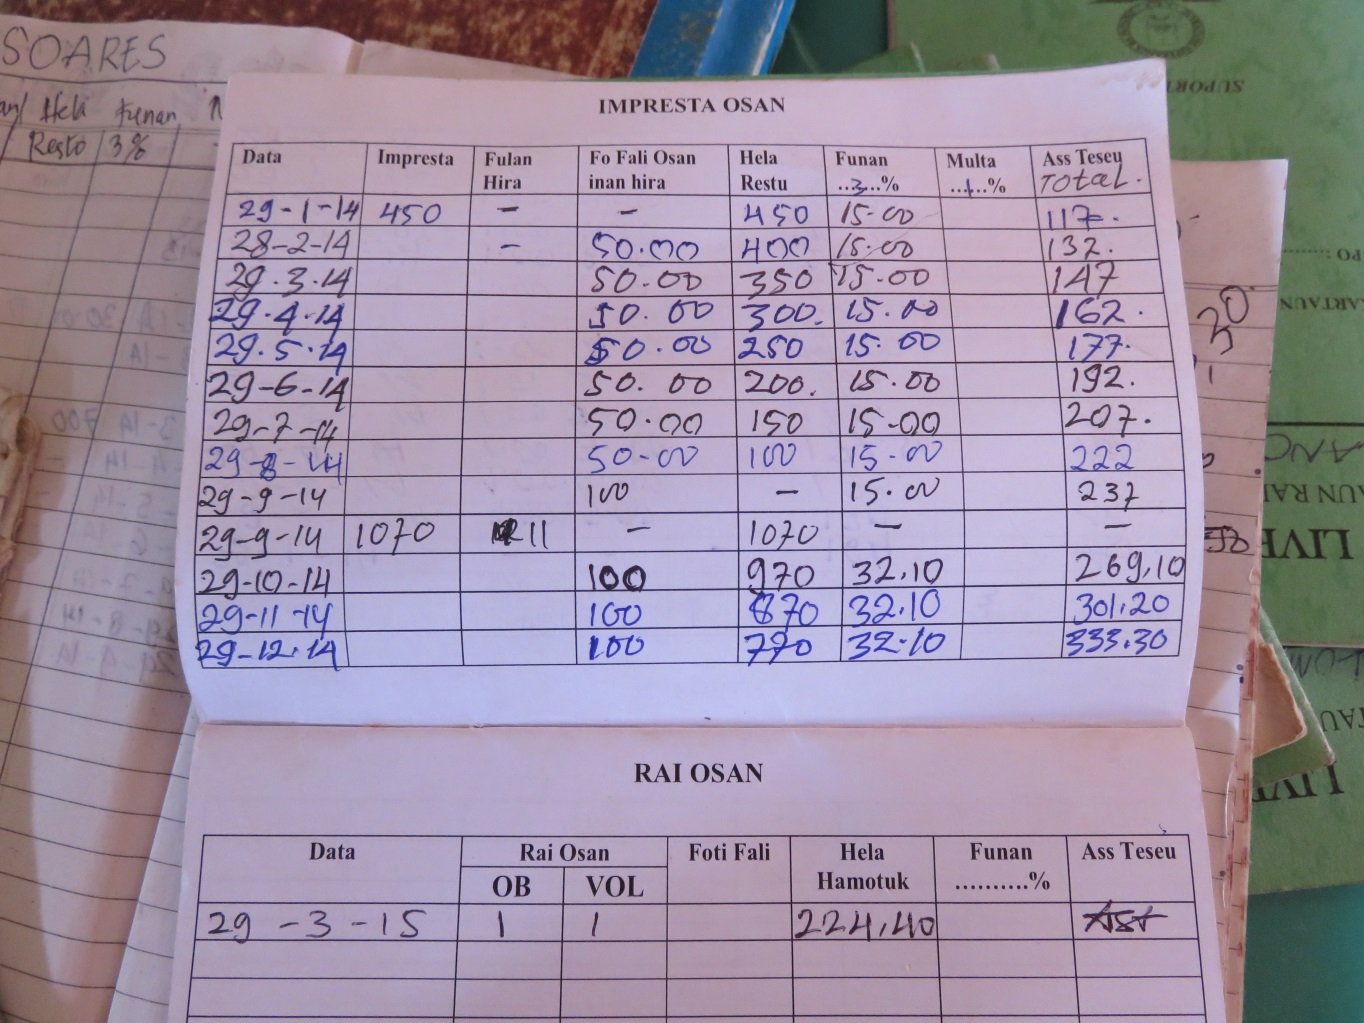 SOARES
Hela Funan
Resto 3%
IMPRESTA OSAN
Data Impresta Fulan Hira Fo Fali Osan inan hira Hela Restu Funan ..3...% Multa ...1...% Ass Teseu Total.
29-1-14 450 - - 450 15.00 117.
28-2-14 - 50.00 400 15.00 132.
29.3.14 50.00 350 15.00 147
29.4.14 50.00 300. 15.00 162.
29.5.14 50.00 250 15.00 177.
29-6-14 50.00 200. 15.00 192.
29-7-14 50.00 150 15-00 207.
29-8-14 50-00 100 15.00 222
29-9-14 100 - 15.00 237
29-9-14 1070 11 - 1070 - -
29-10-14 100 970 32.10 269,10
29-11-14 100 870 32.10 301.20
29-12.14 100 770 32.10 333.30
RAI OSAN
Data Rai Osan Foti Fali Hela Hamotuk Funan ..........% Ass Teseu
OB VOL
29-3-15 1 1 224,40
SUPORT
LIVE